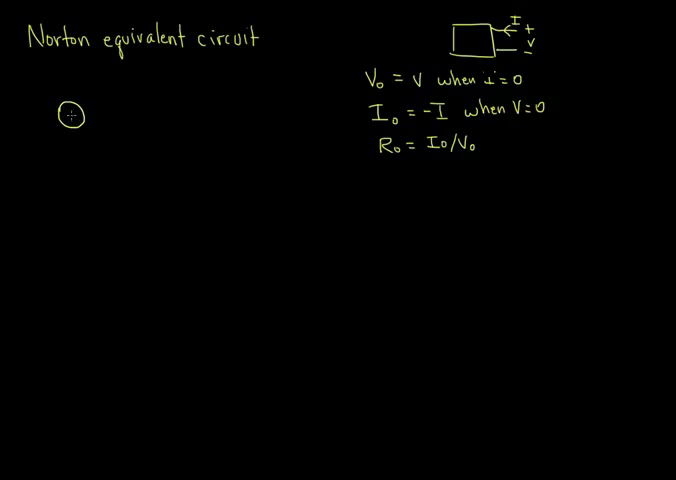 Norton equivalent circuit
I
+
V
-
V₀ = V when i=0
I₀ = -I when V=0
R₀ = I₀/V₀